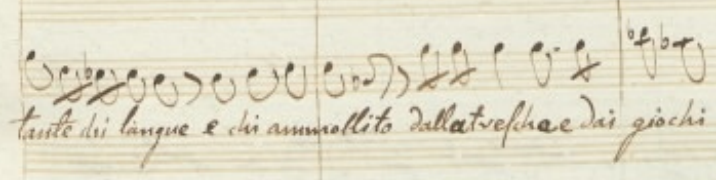 tante chi langue e chi ammollito dalla tresche e dai giochi